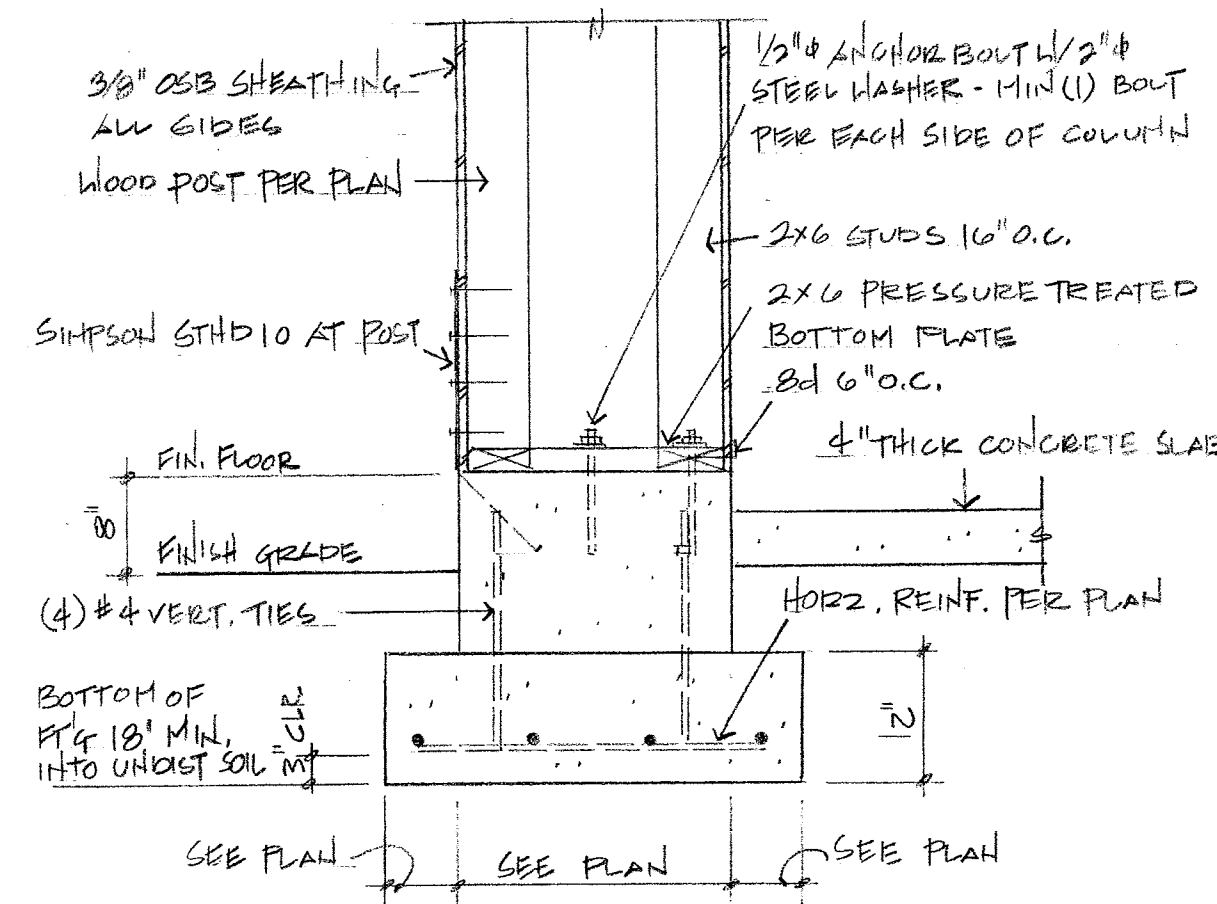 3/8" OSB SHEATHING
ALL SIDES
WOOD POST PER PLAN
SIMPSON STHD10 AT POST
FIN. FLOOR
8"
FINISH GRADE
(4) #4 VERT. TIES
BOTTOM OF
FT'G 18" MIN.
INTO UNDIST SOIL
3" CLR
SEE PLAN
SEE PLAN
SEE PLAN
1/2"ɸ ANCHOR BOLT W/2"ɸ
STEEL WASHER - MIN (1) BOLT
PER EACH SIDE OF COLUMN
2X6 STUDS 16" O.C.
2X6 PRESSURE TREATED
BOTTOM PLATE
8d 6" O.C.
4" THICK CONCRETE SLAB
HORZ. REINF. PER PLAN
12"